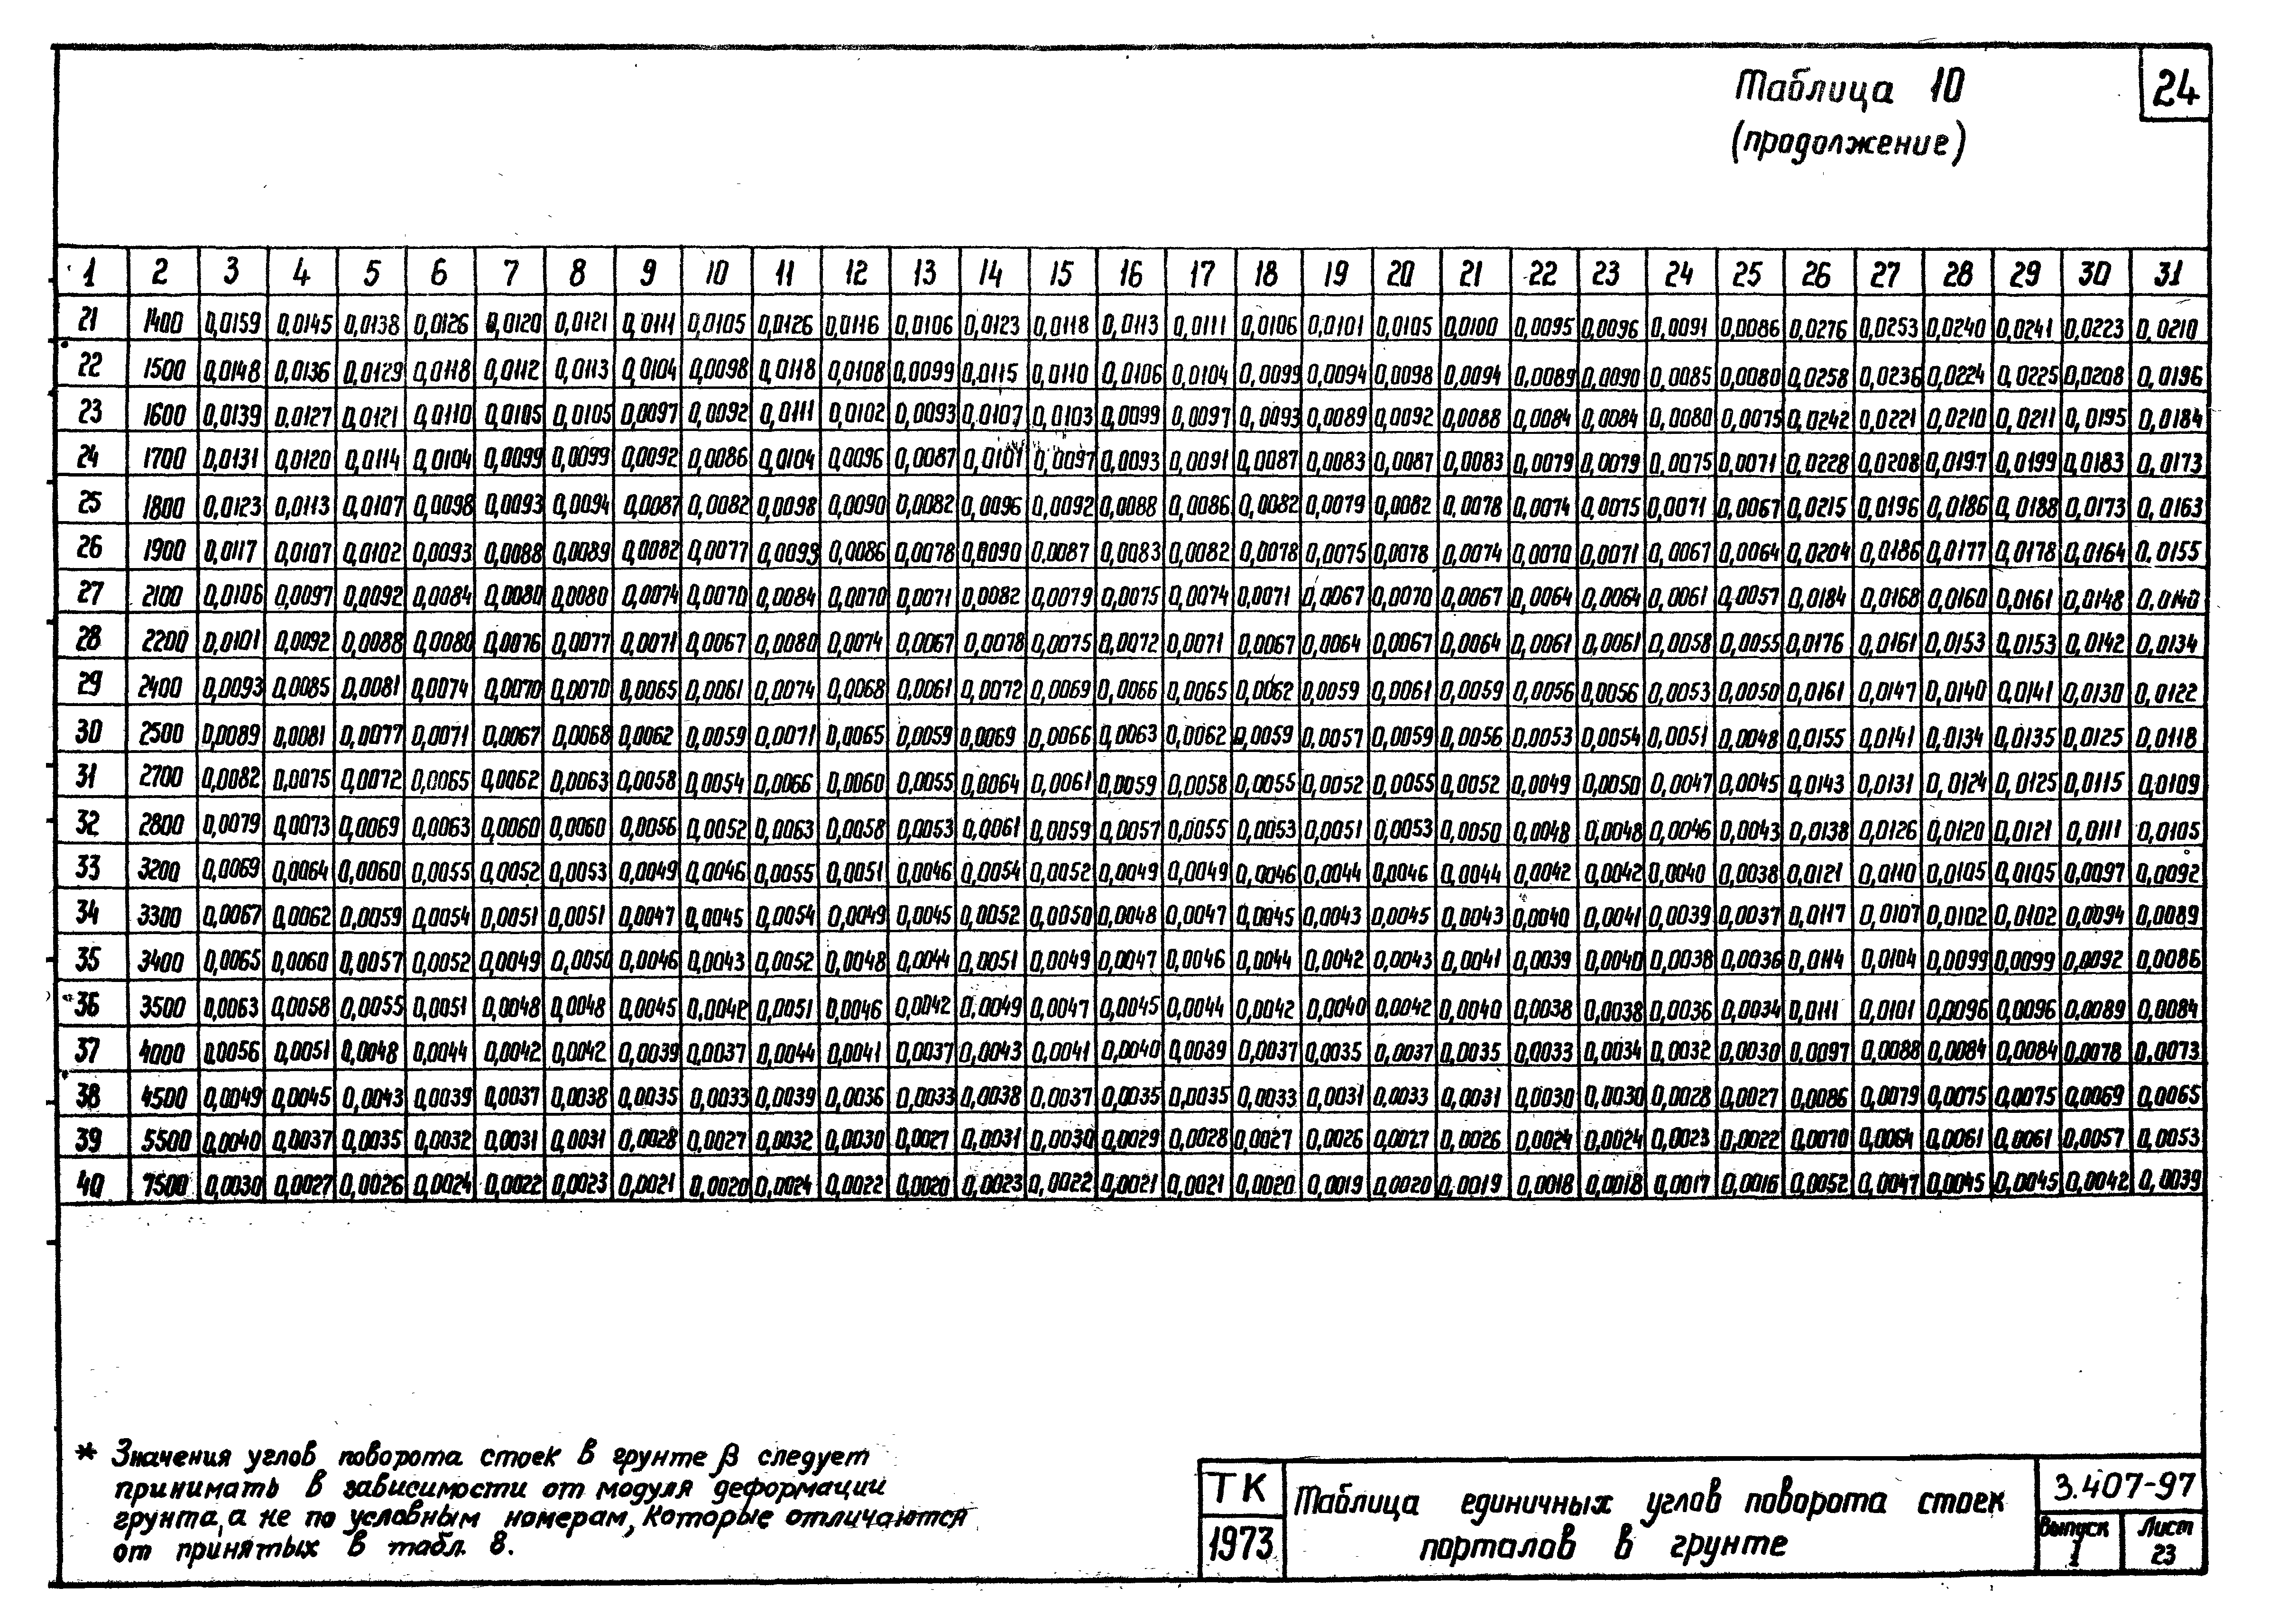 Таблица 10
24
(продолжение)
1 2 3 4 5 6 7 8 9 10 11 12 13 14 15 16 17 18 19 20 21 22 23 24 25 26 27 28 29 30 31
21 1400 0,0159 0,0145 0,0138 0,0126 0,0120 0,0121 0,0111 0,0105 0,0126 0,0116 0,0106 0,0123 0,0118 0,0113 0,0111 0,0106 0,0101 0,0105 0,0100 0,0095 0,0096 0,0091 0,0086 0,0276 0,0253 0,0240 0,0241 0,0223 0,0210
22 1500 0,0148 0,0136 0,0129 0,0118 0,0112 0,0113 0,0104 0,0098 0,0118 0,0108 0,0099 0,0115 0,0110 0,0106 0,0104 0,0099 0,0094 0,0098 0,0094 0,0089 0,0090 0,0085 0,0080 0,0258 0,0236 0,0224 0,0225 0,0208 0,0196
23 1600 0,0139 0,0127 0,0121 0,0110 0,0105 0,0105 0,0097 0,0092 0,0111 0,0102 0,0093 0,0107 0,0103 0,0099 0,0097 0,0093 0,0089 0,0092 0,0088 0,0084 0,0084 0,0080 0,0075 0,0242 0,0221 0,0210 0,0211 0,0195 0,0184
24 1700 0,0131 0,0120 0,0114 0,0104 0,0099 0,0099 0,0092 0,0086 0,0104 0,0096 0,0087 0,0101 0,0097 0,0093 0,0091 0,0087 0,0083 0,0087 0,0083 0,0079 0,0079 0,0075 0,0071 0,0228 0,0208 0,0197 0,0199 0,0183 0,0173
25 1800 0,0123 0,0113 0,0107 0,0098 0,0093 0,0094 0,0087 0,0082 0,0098 0,0090 0,0082 0,0096 0,0092 0,0088 0,0086 0,0082 0,0079 0,0082 0,0078 0,0074 0,0075 0,0071 0,0067 0,0215 0,0196 0,0186 0,0188 0,0173 0,0163
26 1900 0,0117 0,0107 0,0102 0,0093 0,0088 0,0089 0,0082 0,0077 0,0093 0,0086 0,0078 0,0090 0,0087 0,0083 0,0082 0,0078 0,0075 0,0078 0,0074 0,0070 0,0071 0,0067 0,0064 0,0204 0,0186 0,0177 0,0178 0,0164 0,0155
27 2100 0,0106 0,0097 0,0092 0,0084 0,0080 0,0080 0,0074 0,0070 0,0084 0,0070 0,0071 0,0082 0,0079 0,0075 0,0074 0,0071 0,0067 0,0070 0,0067 0,0064 0,0064 0,0061 0,0057 0,0184 0,0168 0,0160 0,0161 0,0148 0,0140
28 2200 0,0101 0,0092 0,0088 0,0080 0,0076 0,0077 0,0071 0,0067 0,0080 0,0074 0,0067 0,0078 0,0075 0,0072 0,0071 0,0067 0,0064 0,0067 0,0064 0,0061 0,0061 0,0058 0,0055 0,0176 0,0161 0,0153 0,0153 0,0142 0,0134
29 2400 0,0093 0,0085 0,0081 0,0074 0,0070 0,0070 0,0065 0,0061 0,0074 0,0068 0,0061 0,0072 0,0069 0,0066 0,0065 0,0062 0,0059 0,0061 0,0059 0,0056 0,0056 0,0053 0,0050 0,0161 0,0147 0,0140 0,0141 0,0130 0,0122
30 2500 0,0089 0,0081 0,0077 0,0071 0,0067 0,0068 0,0062 0,0059 0,0071 0,0065 0,0059 0,0069 0,0066 0,0063 0,0062 0,0059 0,0057 0,0059 0,0056 0,0053 0,0054 0,0051 0,0048 0,0155 0,0141 0,0134 0,0135 0,0125 0,0118
31 2700 0,0082 0,0075 0,0072 0,0065 0,0062 0,0063 0,0058 0,0054 0,0066 0,0060 0,0055 0,0064 0,0061 0,0059 0,0058 0,0055 0,0052 0,0055 0,0052 0,0049 0,0050 0,0047 0,0045 0,0143 0,0131 0,0124 0,0125 0,0115 0,0109
32 2800 0,0079 0,0073 0,0069 0,0063 0,0060 0,0060 0,0056 0,0052 0,0063 0,0058 0,0053 0,0061 0,0059 0,0057 0,0055 0,0053 0,0051 0,0053 0,0050 0,0048 0,0048 0,0046 0,0043 0,0138 0,0126 0,0120 0,0121 0,0111 0,0105
33 3200 0,0069 0,0064 0,0060 0,0055 0,0052 0,0053 0,0049 0,0046 0,0055 0,0051 0,0046 0,0054 0,0052 0,0049 0,0049 0,0046 0,0044 0,0046 0,0044 0,0042 0,0042 0,0040 0,0038 0,0121 0,0110 0,0105 0,0105 0,0097 0,0092
34 3300 0,0067 0,0062 0,0059 0,0054 0,0051 0,0051 0,0047 0,0045 0,0054 0,0049 0,0045 0,0052 0,0050 0,0048 0,0047 0,0045 0,0043 0,0045 0,0043 0,0040 0,0041 0,0039 0,0037 0,0117 0,0107 0,0102 0,0102 0,0094 0,0089
35 3400 0,0065 0,0060 0,0057 0,0052 0,0049 0,0050 0,0046 0,0043 0,0052 0,0048 0,0044 0,0051 0,0049 0,0047 0,0046 0,0044 0,0042 0,0043 0,0041 0,0039 0,0040 0,0038 0,0036 0,0114 0,0104 0,0099 0,0099 0,0092 0,0086
36 3500 0,0063 0,0058 0,0055 0,0051 0,0048 0,0048 0,0045 0,0042 0,0051 0,0046 0,0042 0,0049 0,0047 0,0045 0,0044 0,0042 0,0040 0,0042 0,0040 0,0038 0,0038 0,0036 0,0034 0,0111 0,0101 0,0096 0,0096 0,0089 0,0084
37 4000 0,0056 0,0051 0,0048 0,0044 0,0042 0,0042 0,0039 0,0037 0,0044 0,0041 0,0037 0,0043 0,0041 0,0040 0,0039 0,0037 0,0035 0,0037 0,0035 0,0033 0,0034 0,0032 0,0030 0,0097 0,0088 0,0084 0,0084 0,0078 0,0073
38 4500 0,0049 0,0045 0,0043 0,0039 0,0037 0,0038 0,0035 0,0033 0,0039 0,0036 0,0033 0,0038 0,0037 0,0035 0,0035 0,0033 0,0031 0,0033 0,0031 0,0030 0,0030 0,0028 0,0027 0,0086 0,0079 0,0075 0,0075 0,0069 0,0065
39 5500 0,0040 0,0037 0,0035 0,0032 0,0031 0,0031 0,0028 0,0027 0,0032 0,0030 0,0027 0,0031 0,0030 0,0029 0,0028 0,0027 0,0026 0,0027 0,0026 0,0024 0,0024 0,0023 0,0022 0,0070 0,0064 0,0061 0,0061 0,0057 0,0053
40 7500 0,0030 0,0027 0,0026 0,0024 0,0022 0,0023 0,0021 0,0020 0,0024 0,0022 0,0020 0,0023 0,0022 0,0021 0,0021 0,0020 0,0019 0,0020 0,0019 0,0018 0,0018 0,0017 0,0016 0,0052 0,0047 0,0045 0,0045 0,0042 0,0039
* Значения углов поворота стоек в грунте β следует
принимать в зависимости от модуля деформации
грунта, а не по условным номерам, которые отличаются
от принятых в табл. 8.
ТК
1973
Таблица единичных углов поворота стоек
порталов в грунте
3.407-97
Выпуск
1
Лист
23